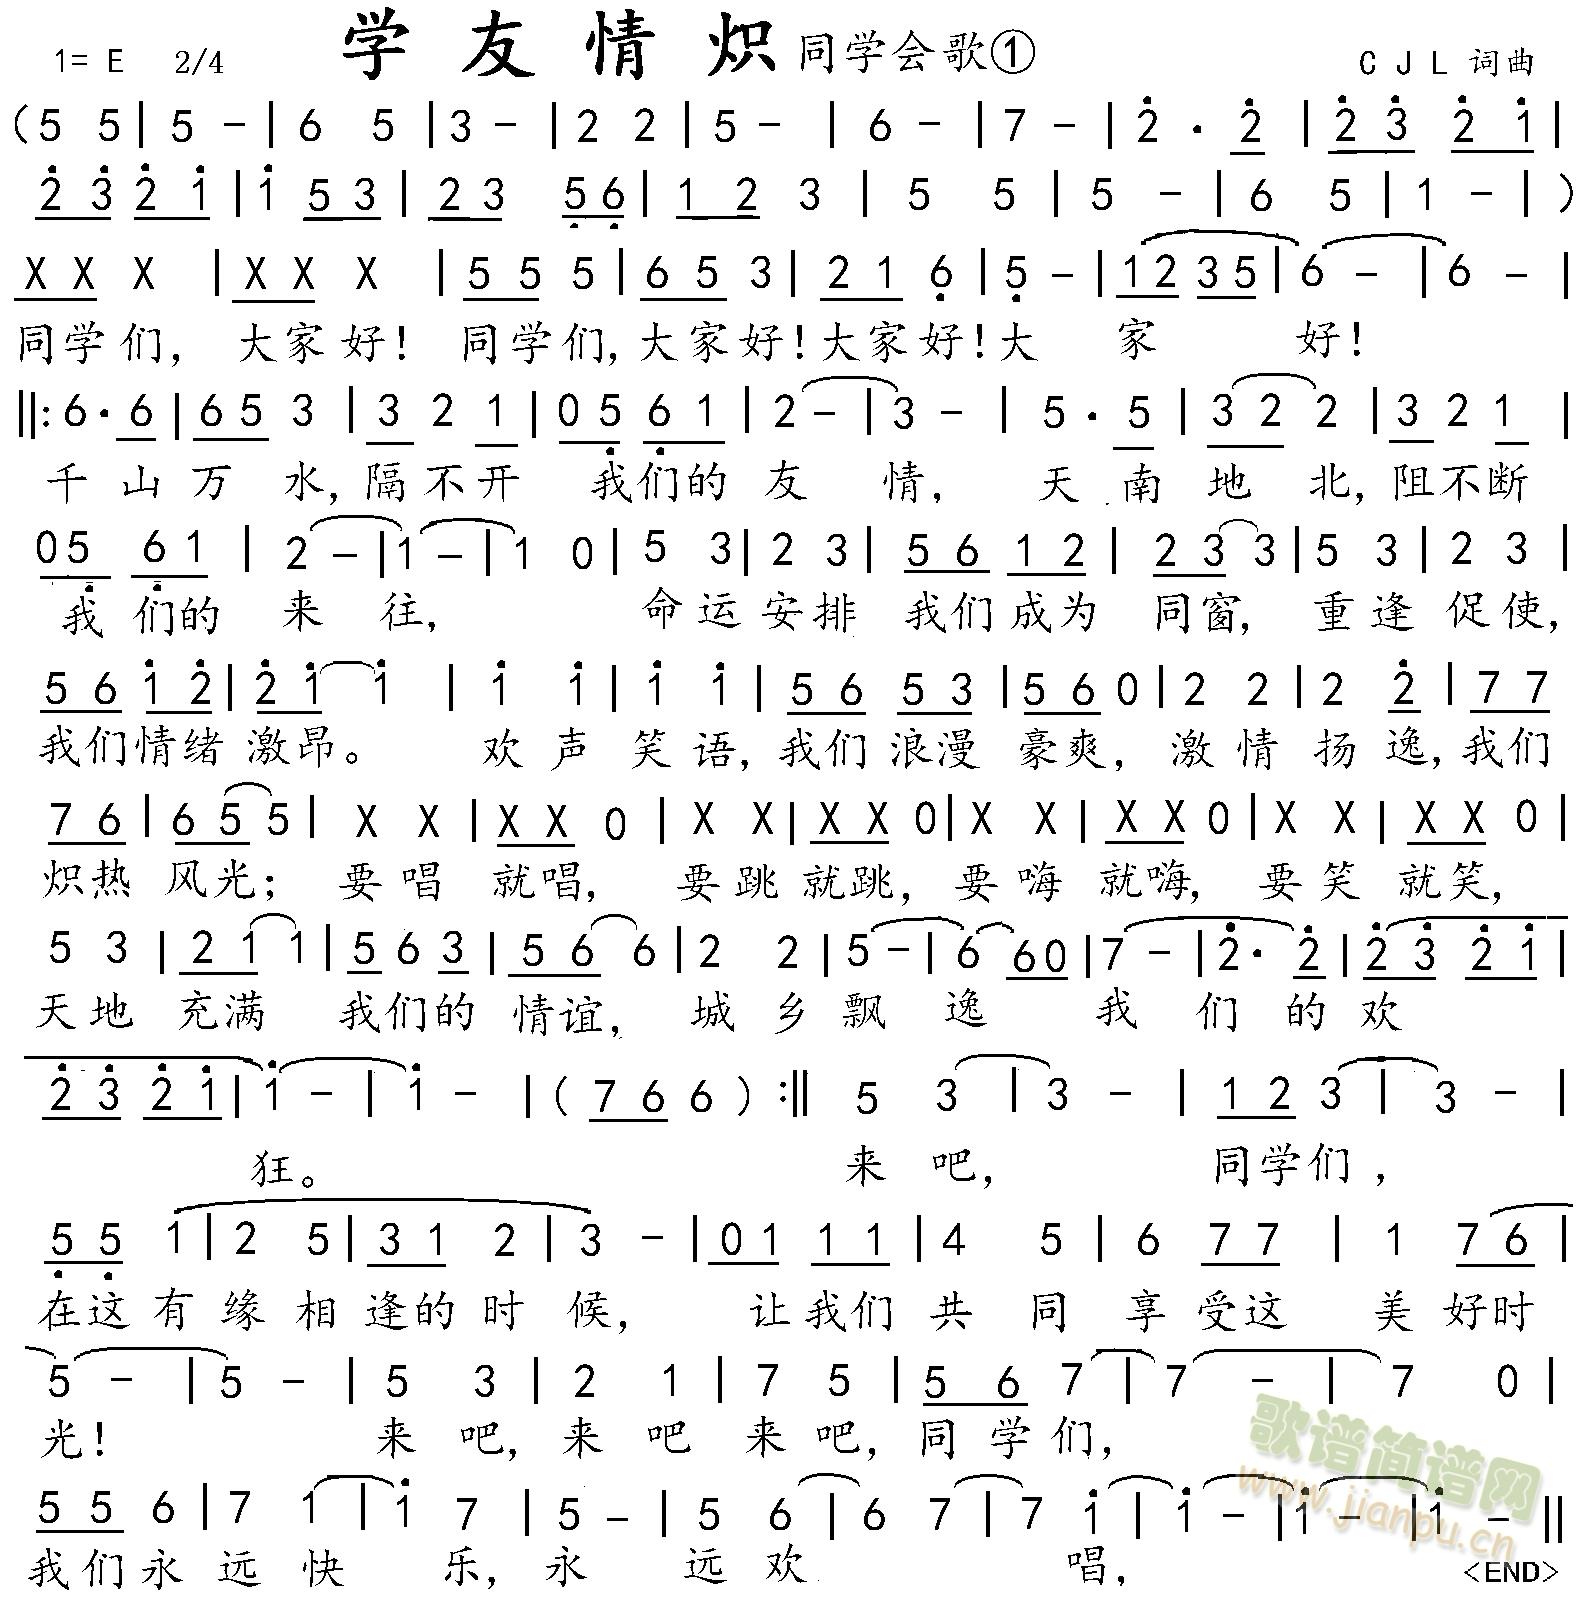 1= E 2/4 学友情炽 同学会歌① C J L 词曲
(5 5 | 5 - | 6 5 | 3 - | 2 2 | 5 - | 6 - | 7 - | 2̇ · 2̇ | 2̇ 3̇ 2̇ 1̇ |
2̇ 3̇ 2̇ 1̇ | 1̇ 5 3 | 2 3 5̣ 6̣ | 1 2 3 | 5 5 | 5 - | 6 5 | 1 - | )
X X X | X X X | 5 5 5 | 6 5 3 | 2 1 6̣ | 5̣ - | 1 2 3 5 | 6 - | 6 - |
同学们, 大家好! 同学们, 大家好! 大家好! 大 家 好!
‖: 6 · 6 | 6 5 3 | 3 2 1 | 0 5̣ 6̣ 1 | 2 - | 3 - | 5 · 5 | 3 2 2 | 3 2 1 |
千山万水, 隔不开 我们的友情, 天南地北, 阻不断
0 5̣ 6̣ 1 | 2 - | 1 - | 1 0 | 5 3 | 2 3 | 5 6 1 2 | 2 3 3 | 5 3 | 2 3 |
我们的来往, 命运安排 我们成为 同窗, 重逢促使,
5 6 1̇ 2̇ | 2̇ 1̇ 1̇ | 1̇ 1̇ | 1̇ 1̇ | 5 6 5 3 | 5 6 0 | 2 2 | 2 2̇ | 7 7
我们情绪激昂。 欢声笑语, 我们浪漫豪爽, 激情扬逸, 我们
7 6 | 6 5 5 | X X | X X 0 | X X | X X 0 | X X | X X 0 | X X | X X 0 |
炽热风光; 要唱就唱, 要跳就跳, 要嗨就嗨, 要笑就笑,
5 3 | 2 1 1 | 5 6 3 | 5 6 6 | 2 2 | 5 - | 6 6 0 | 7 - | 2̇ · 2̇ | 2̇ 3̇ 2̇ 1̇ |
天地充满 我们的情谊, 城乡飘逸 我们的欢
2̇ 3̇ 2̇ 1̇ | 1̇ - | 1̇ - | ( 7 6 6 ) :‖ 5 3 | 3 - | 1 2 3 | 3 - |
狂。 来吧, 同学们,
5̣ 5̣ 1 | 2 5 | 3 1 2 | 3 - | 0 1 1 1 | 4 5 | 6 7 7 | 1 7 6 |
在这有缘相逢的时候, 让我们共同享受这美好时
5 - | 5 - | 5 3 | 2 1 | 7 5 | 5 6 7 | 7 - | 7 0 |
光! 来吧, 来吧来吧, 同学们,
5 5 6 | 7 1 | 1̇ 7 | 5 - | 5 6 | 6 7 | 7 1̇ | 1̇ - | 1̇ - | 1̇ - ‖
我们永远快乐, 永远欢唱, <END>
歌谱简谱网
www.jianpu.cn